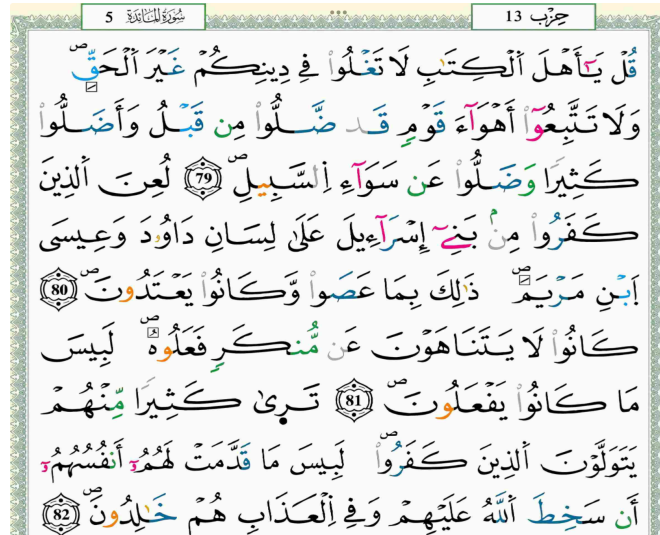 حِزْب 13 سُورَةُ الْمَائِدَةِ 5
قُلْ يَـٰٓأَهْلَ اَ۬لْكِتَـٰبِ لَا تَغْلُواْ فِے دِينِكُمْ غَيْرَ اَ۬لْحَقِّۖ
وَلَا تَتَّبِعُوٓاْ أَهْوَآءَ قَوْمٖ قَد ضَّلُّواْ مِن قَبْلُ وَأَضَلُّواْ
كَثِيراٗ وَضَلُّواْ عَن سَوَآءِ اِ۬لسَّبِيلِۖ 79 لُعِنَ اَ۬لذِينَ
كَفَرُواْ مِنۢ بَنِےٓ إِسْرَآءِيلَ عَلَىٰ لِسَانِ دَاوُۥدَ وَعِيسَى
اَ۪بْنِ مَرْيَمَۖ ذَٰلِكَ بِمَا عَصَواْ وَّكَانُواْ يَعْتَدُونَۖ 80
كَانُواْ لَا يَتَنَاهَوْنَ عَن مُّنكَرٖ فَعَلُوهُۖ لَبِيسَ
مَا كَانُواْ يَفْعَلُونَۖ 81 تَرٜىٰ كَثِيراٗ مِّنْهُمْ
يَتَوَلَّوْنَ اَ۬لذِينَ كَفَرُواْۖ لَبِيسَ مَا قَدَّمَتْ لَهُمُۥٓ أَنفُسُهُمُۥٓ
أَن سَخِطَ اَ۬للَّهُ عَلَيْهِمْ وَفِے اِ۬لْعَذَابِ هُمْ خَـٰلِدُونَۖ 82